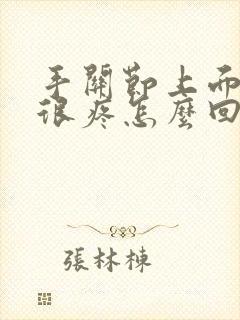 手關節上面
很疼怎麼回
張林棟